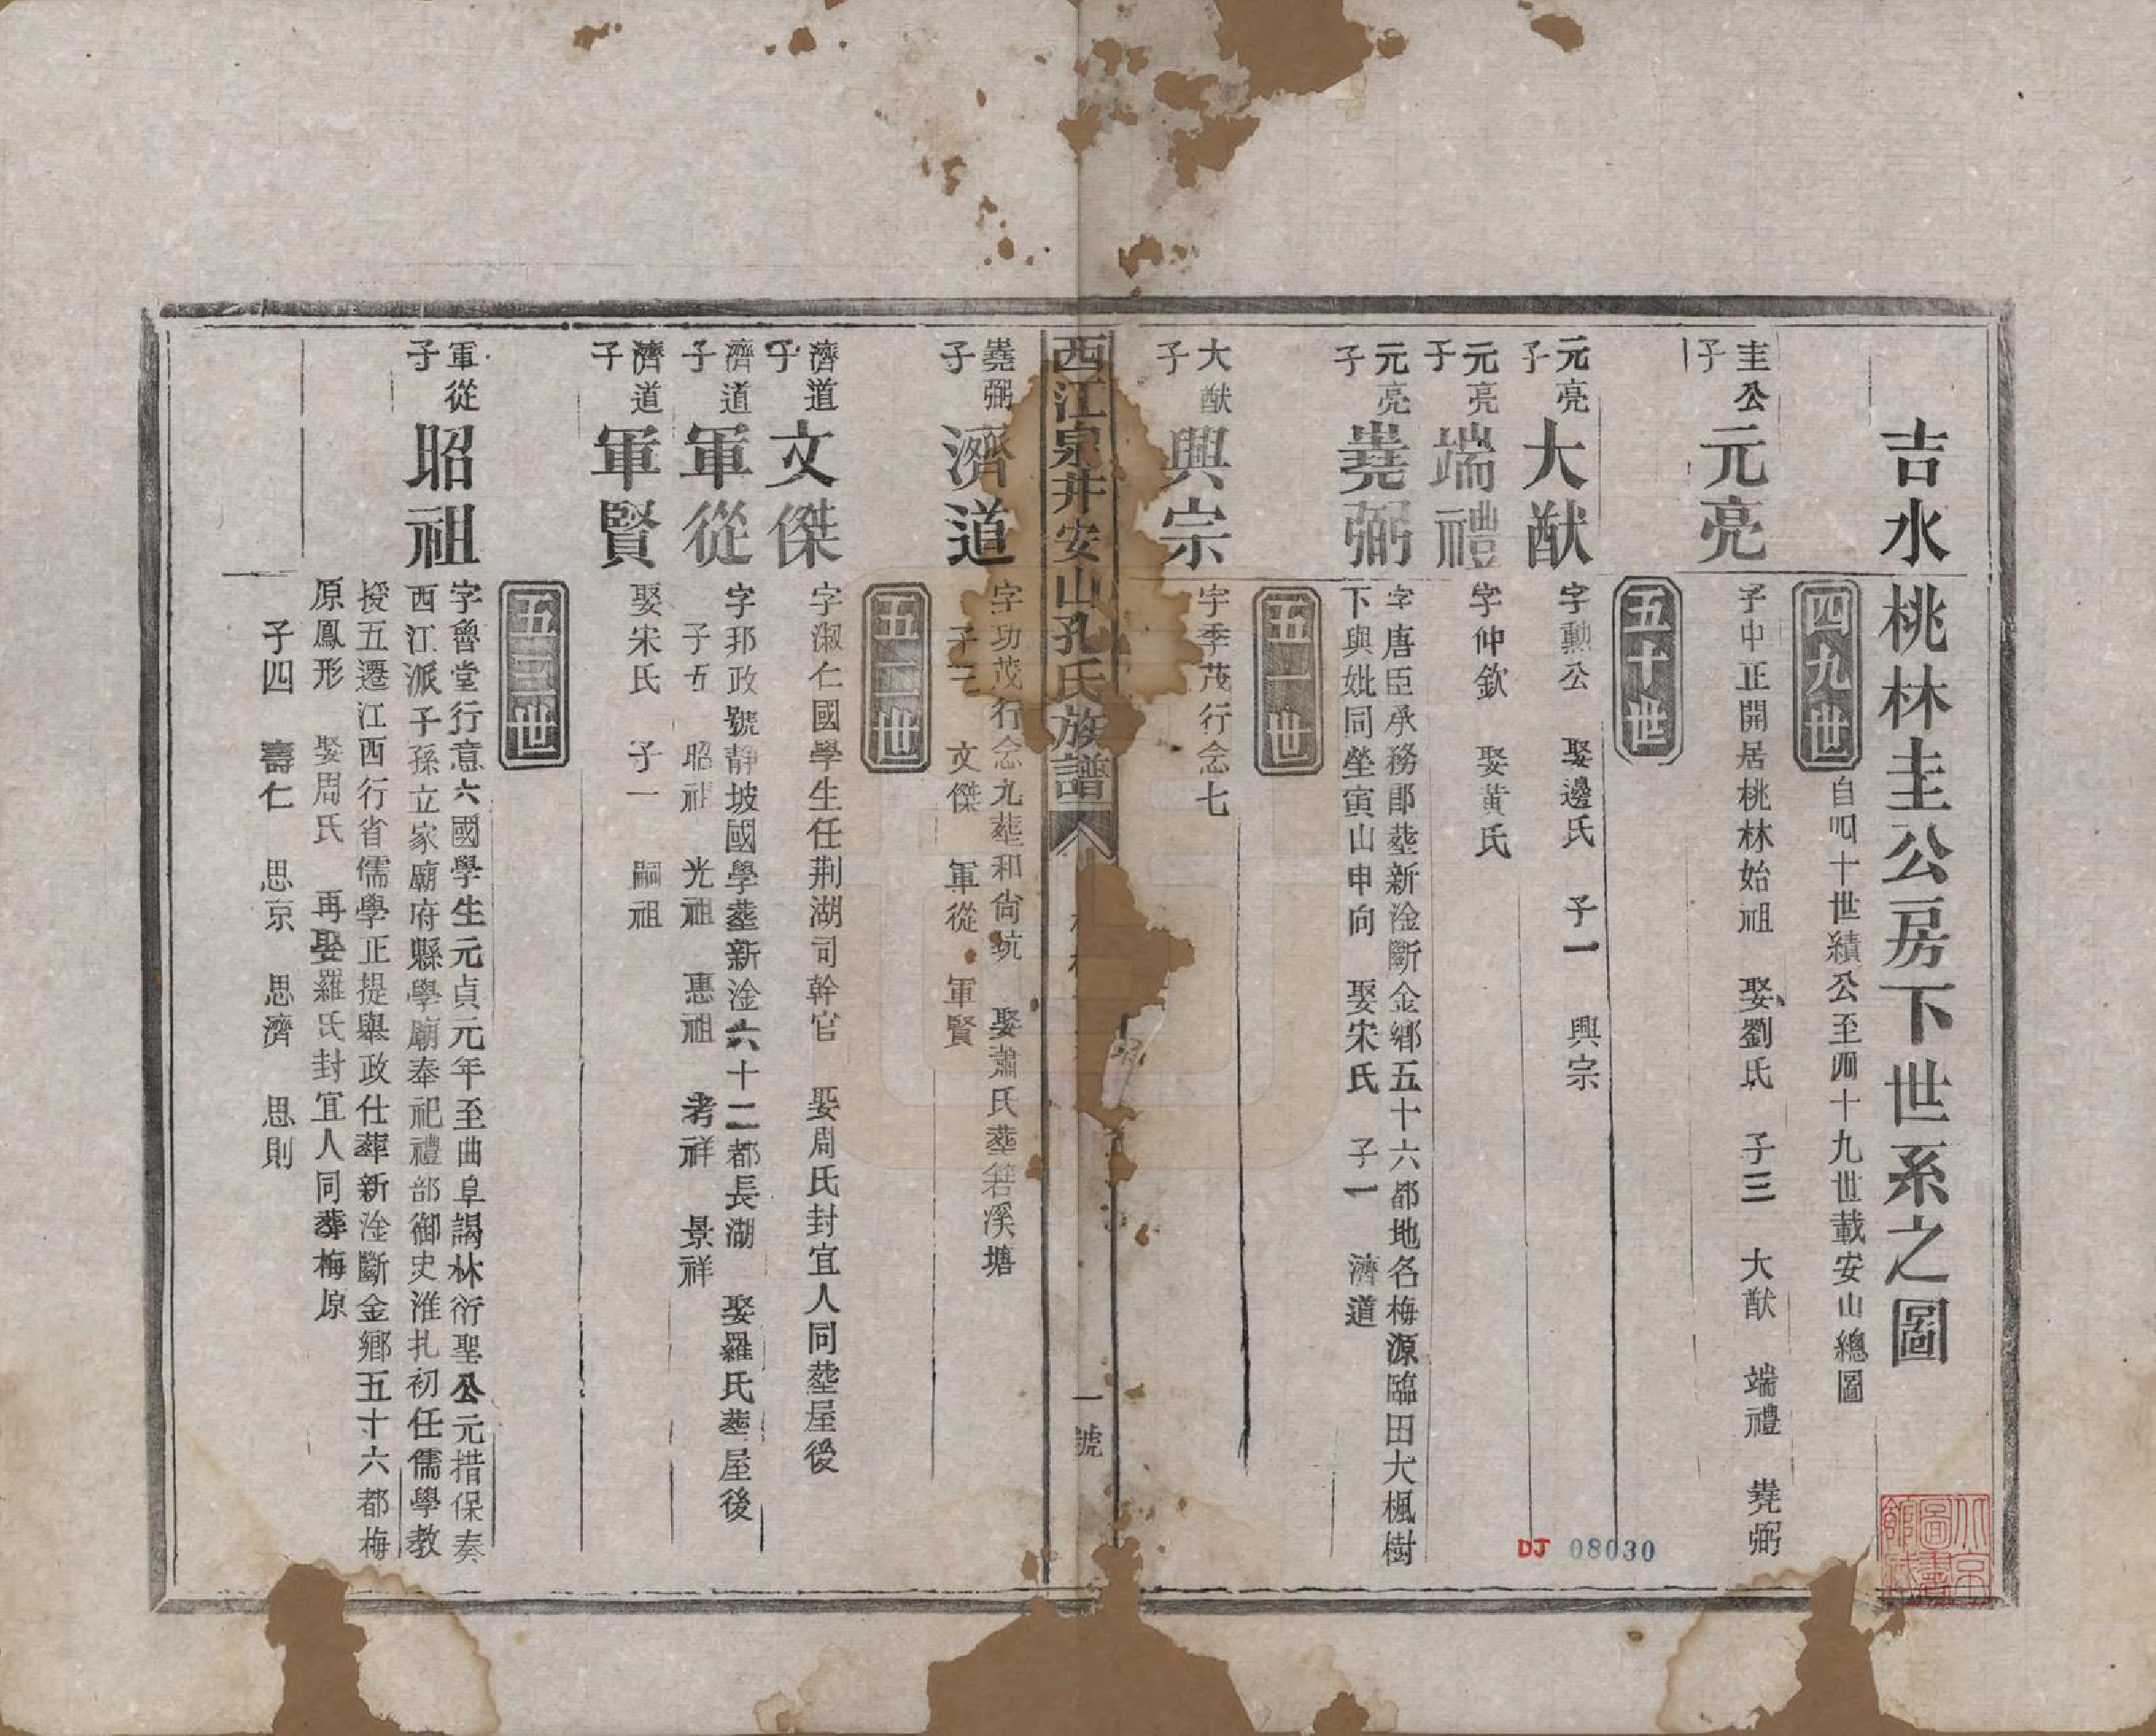 吉水桃林圭公房下世系之圖
四九世
自四十世績公至四十九世載安山總圖
圭公子
元亮
子中正開居桃林始祖 娶劉氏 子三 大猷 端禮 堯弼
五十世
元亮子
大猷
字勳公 娶邊氏 子一 興宗
元亮子
端禮
字仲欽 娶黃氏
元亮子
堯弼
字唐臣承務郎塟新淦斷金鄉五十六都地名梅源臨田大楓樹
下與妣同塋寅山申向 娶宋氏 子一 濟道
五一世
大猷子
興宗
字季茂行念七
西江泉井安山孔氏族譜
一號
堯弼子
濟道
字功茂行念九塟和尙坑 娶蕭氏塟箬溪塘
子三 文傑 軍從 軍賢
五二世
濟道子
文傑
字淑仁國學生任荆湖司幹官 娶周氏封宜人同塟屋後
濟道子
軍從
字邦政號靜坡國學塟新淦六十二都長湖 娶羅氏塟屋後
子五 昭祖 光祖 惠祖 考祥 景祥
濟道子
軍賢
娶宋氏 子一 嗣祖
五三世
軍從子
昭祖
字魯堂行意六國學生元貞元年至曲阜謁林衍聖公元措保奏
西江派子孫立家廟府縣學廟奉祀禮部御史淮扎初任儒學教
授五遷江西行省儒學正提舉政仕葬新淦斷金鄉五十六都梅
原鳳形 娶周氏 再娶羅氏封宜人同葬梅原
子四 壽仁 思京 思濟 思則
DJ 08030